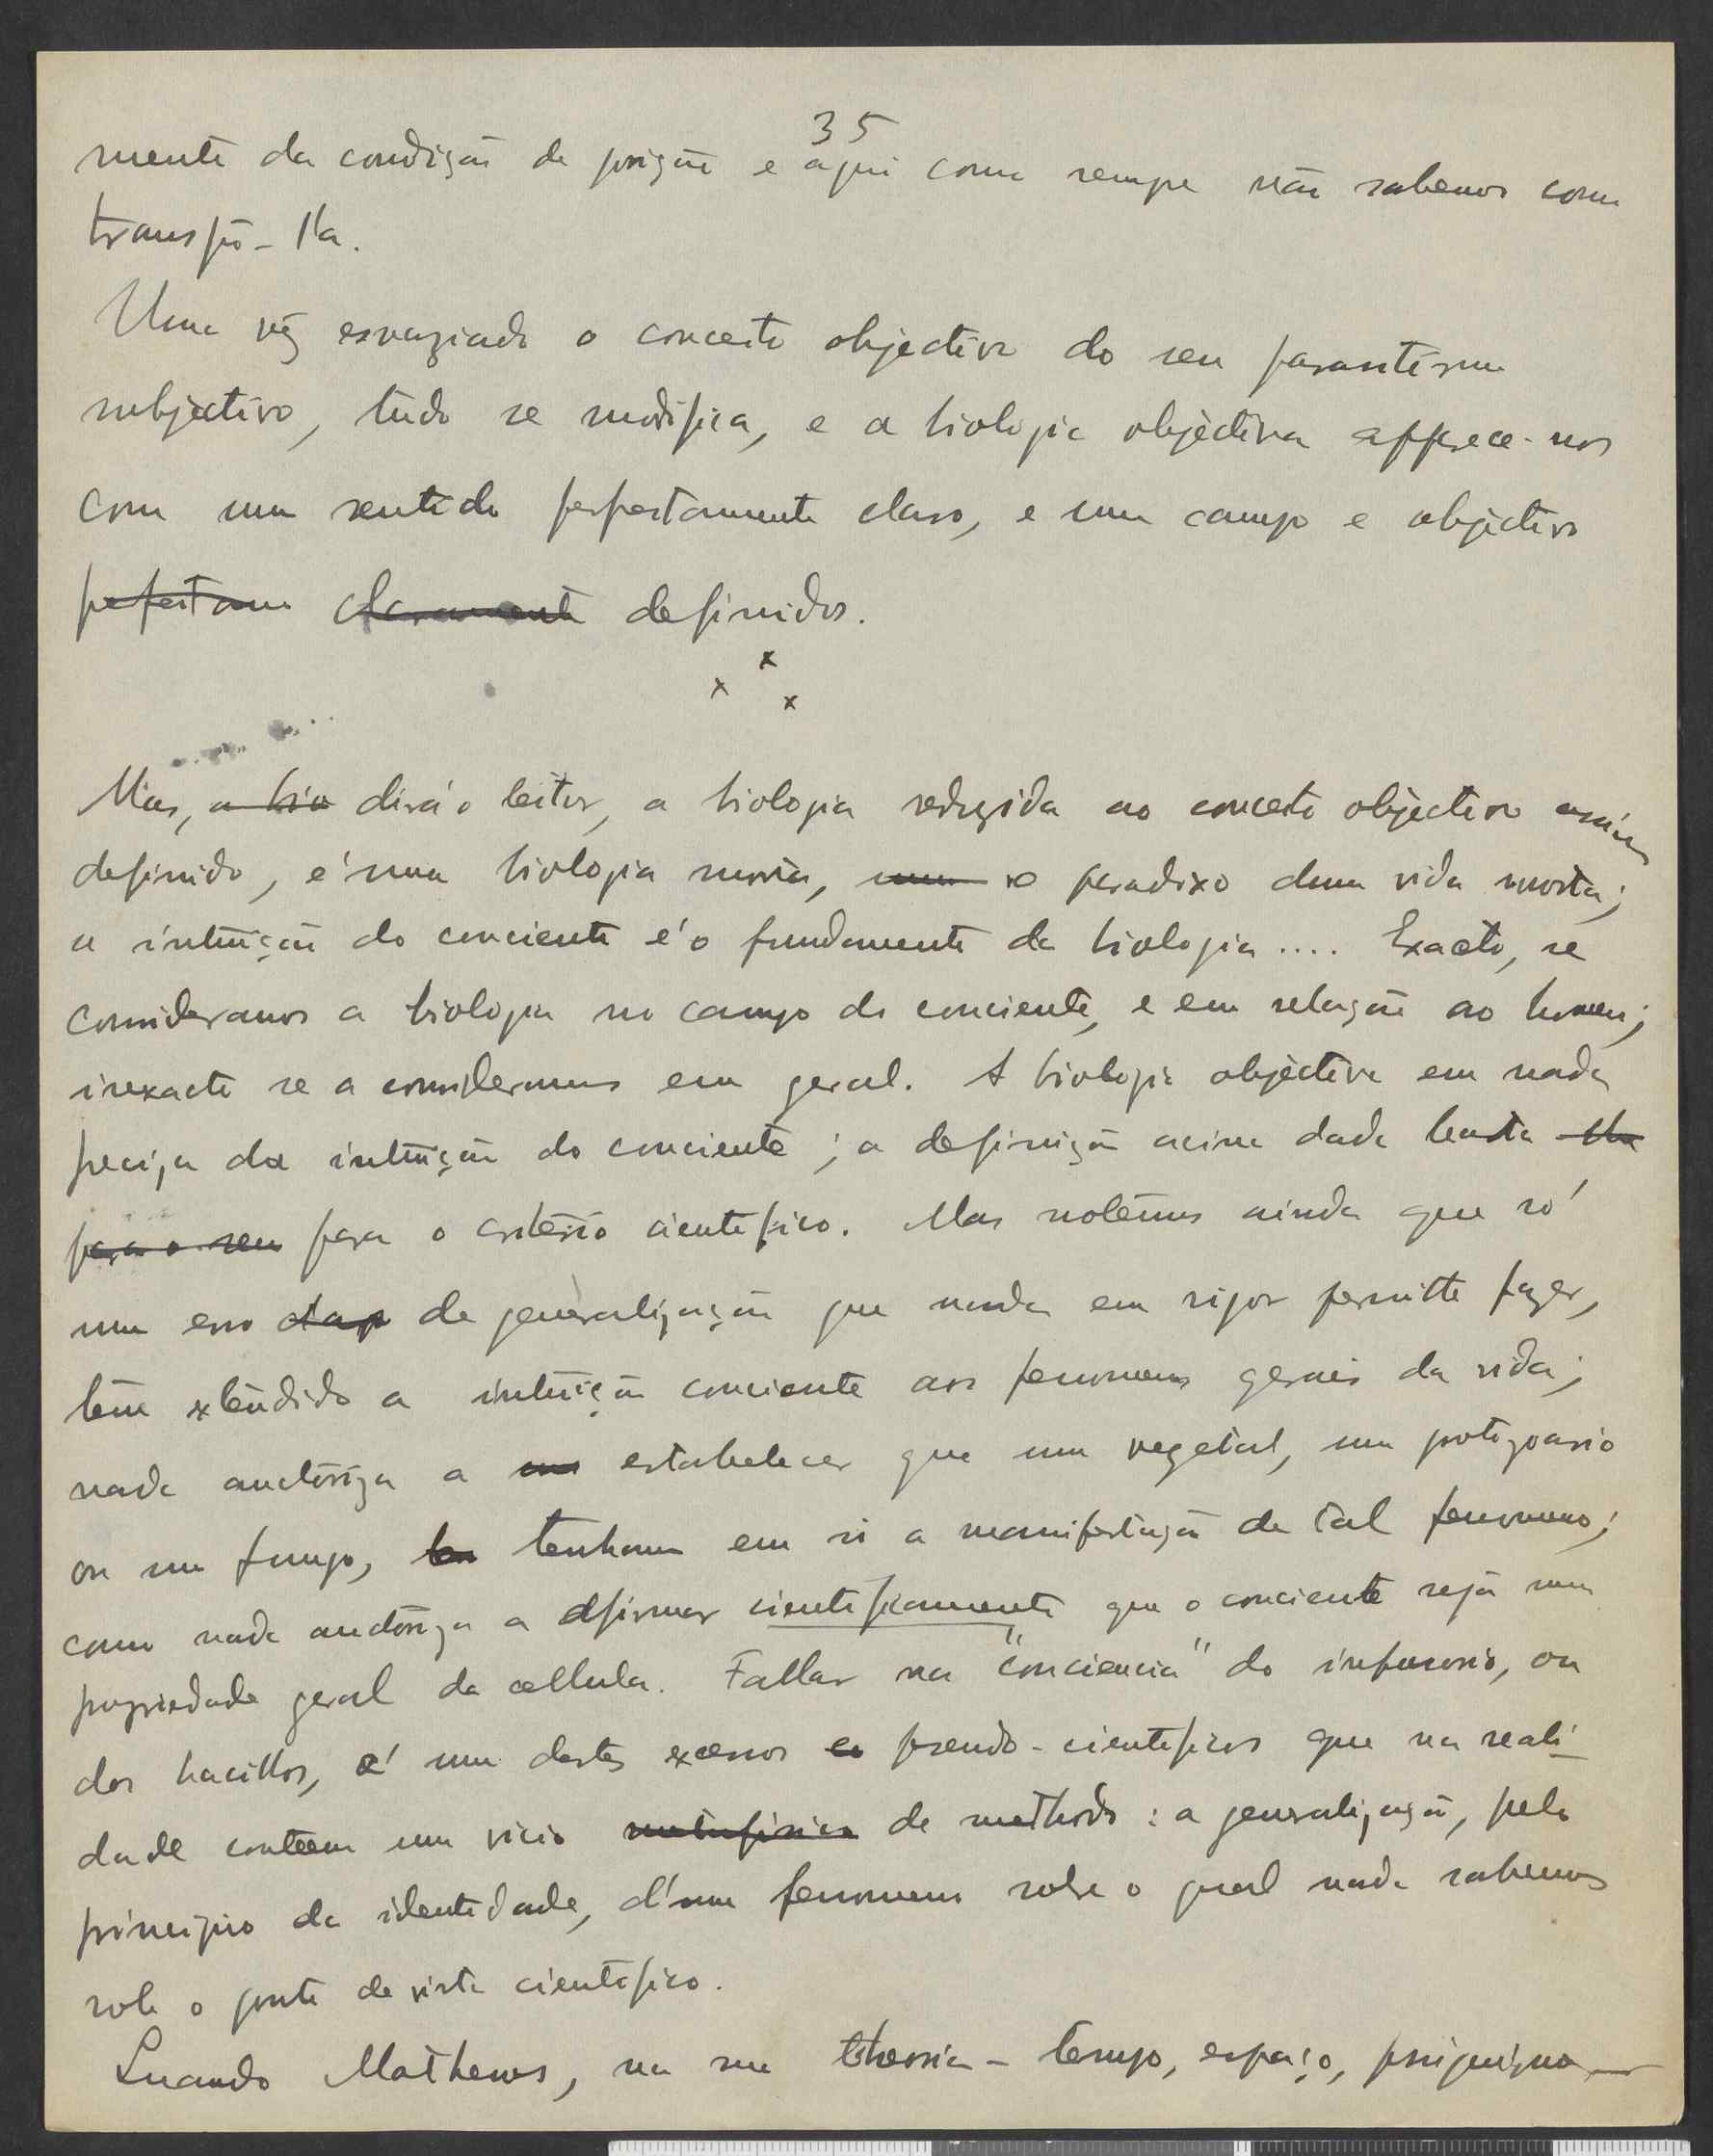 35
mente da condição de posição e aqui como sempre não sabemos como
transpô-l'a.
Uma vêz esvaziado o conceito objectivo do seu parasitismo
subjectivo, tudo se modifica, e a biologia objectiva apparece-nos
com um sentido perfeitamente claro, e um campo e objectivo
pefeitam claramente definidos.
x x x
Mas, a bio dirá o leitor, a biologia reduzida ao conceito objectivo assim
definido, é uma biologia morta, um o paradoxo duma vida morta;
a intuição do conciente é o fundamento da biologia .... Exacto, se
consideramos a biologia no campo do conciente, e em relação ao homem;
inexacto se a considerarmos em geral. A biologia objectiva em nada
precisa da intuição do conciente; a definição acima dada basta
para o seu para o criterio cientifico. Mas notêmos ainda que só
um erro de generalização que nada em rigor permitte fazer,
tem extendido a intuição conciente aos fenomenos geraes da vida;
nada auctoriza a estabelecer que um vegetal, um protozoario
ou um fungo, tenham em si a manifestação de tal fenomeno;
como nada auctoriza a afirmar cientificamente que o conciente seja uma
propriedade geral da cellula. Fallar na "conciencia" do infusorio, ou
dos bacillos, é um destes excessos pseudo-cientificos que na reali-
dade contêem um vicio metafisico de methodo: a generalização, pelo
principio da identidade, d'um fenomeno sobre o qual nada sabemos
sob o ponto de vista cientifico.
Quando Mathews, na sua theoria - tempo, espaço, psiquismo -